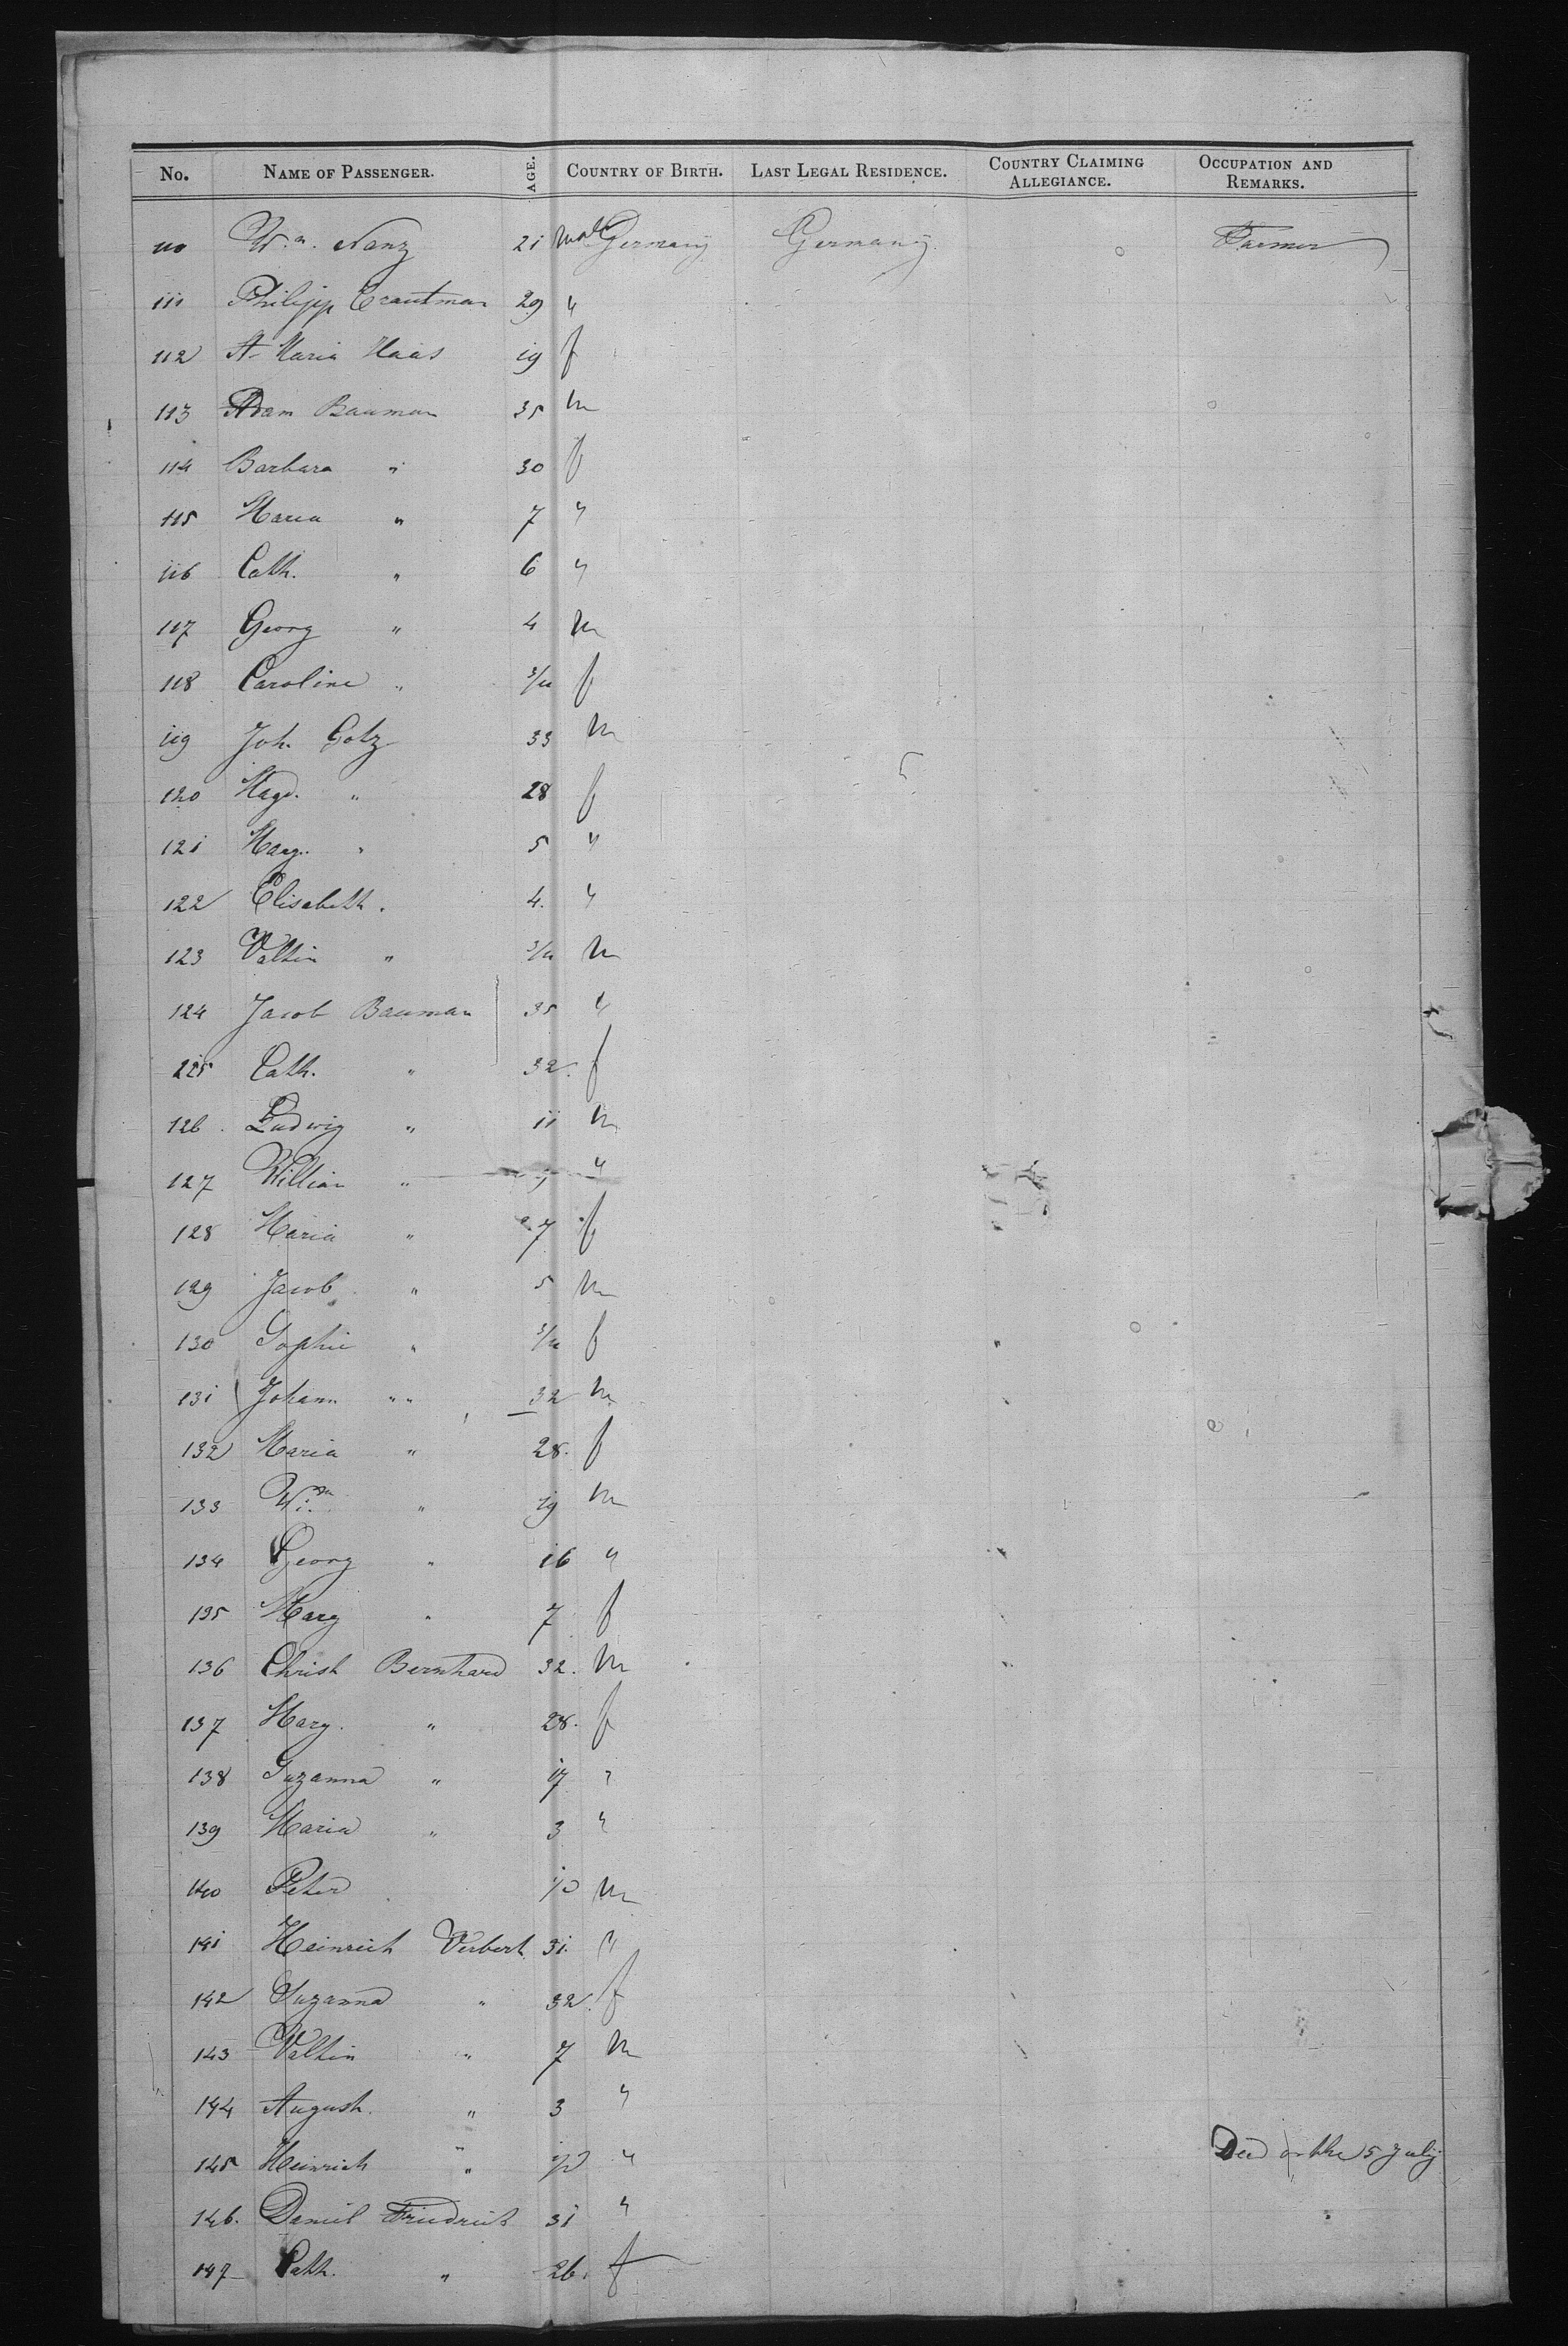 No. NAME OF PASSENGER. AGE. COUNTRY OF BIRTH. LAST LEGAL RESIDENCE. COUNTRY CLAIMING ALLEGIANCE. OCCUPATION AND REMARKS.
110 Wm. Nanz 21 male Germany Germany Farmer
111 Philipp Trautman 29 "
112 A. Maria Haas 19 f
113 Adam Bauman 35 m
114 Barbara " 30 f
115 Maria " 7 "
116 Cath. " 6 "
117 Georg " 4 m
118 Caroline " f
119 Joh. Gotz 33 m
120 Magd. " 28 f
121 Marg. " 5 "
122 Elisabeth " 4. "
123 Valtin " m
124 Jacob Bauman 35 "
225 Cath. " 32. f
126 Ludwig " 11 m
127 William " "
128 Maria " 7 f
129 Jacob " 5 m
130 Sophie " f
131 Johann " " 32 m
132 Maria " 28. f
133 Wm. " 19 m
134 Georg " 16 "
135 Marg " 7 f
136 Christ Bernhard 32. m
137 Marg. " 28. f
138 Suzanna " "
139 Maria " 3 "
140 Peter m
141 Heinrich Verbert 31. "
142 Suzanna " 32. f
143 Valtin " 7 m
144 August. " 3 "
145 Heinrich " " Died on the 5 July
146. Daniel Friedrich 31 "
147 Cath. " 26. f